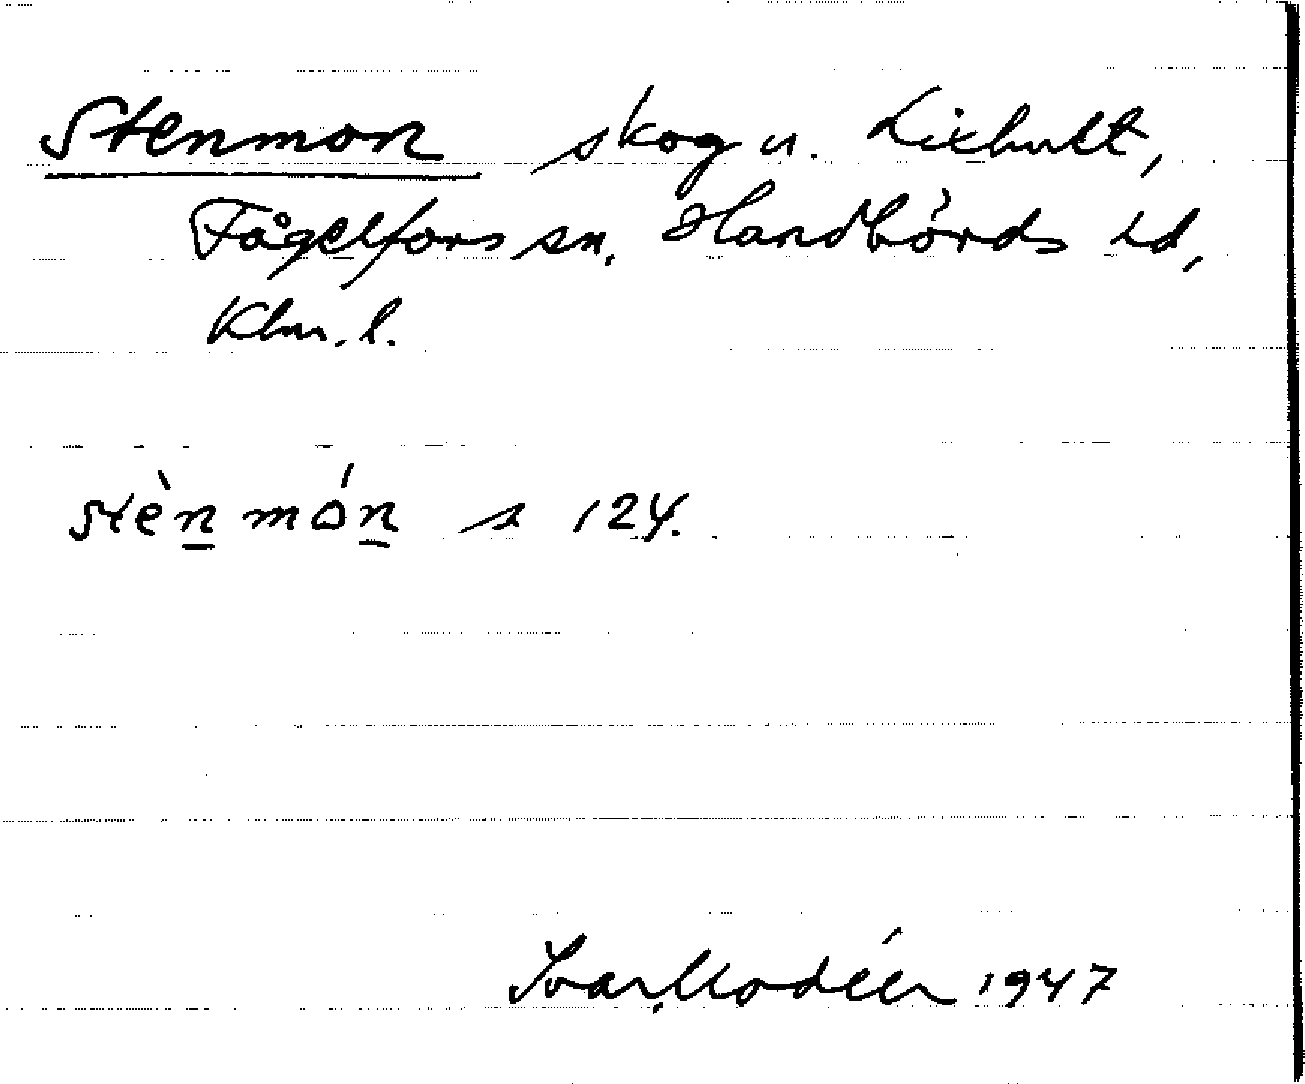 Stenmon skog u. Lixhult,
Fågelfors sn, Handbörds hd,
Klm. l.
stèn món s 124.
Ivar Modéer 1947